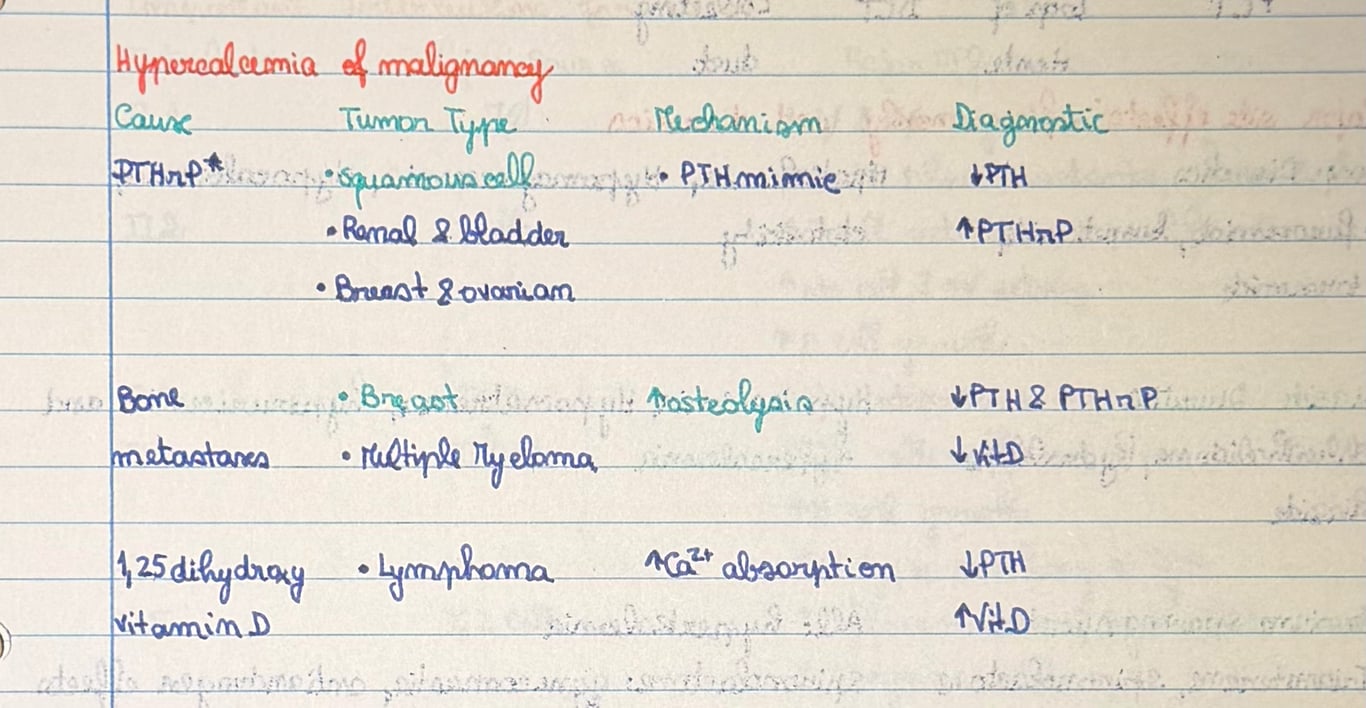 Hypercalcemia of malignancy
Cause Tumor Type Mechanism Diagnostic
PTHrP* • Squamous cell • PTH mimic ↓PTH
• Renal & bladder ↑PTHrP
• Breast & ovarian
Bone • Breast ↑osteolysis ↓PTH & PTHrP
metastases • Multiple Myeloma ↓VitD
1,25 dihydroxy • Lymphoma ↑Ca²⁺ absorption ↓PTH
vitamin D ↑VitD